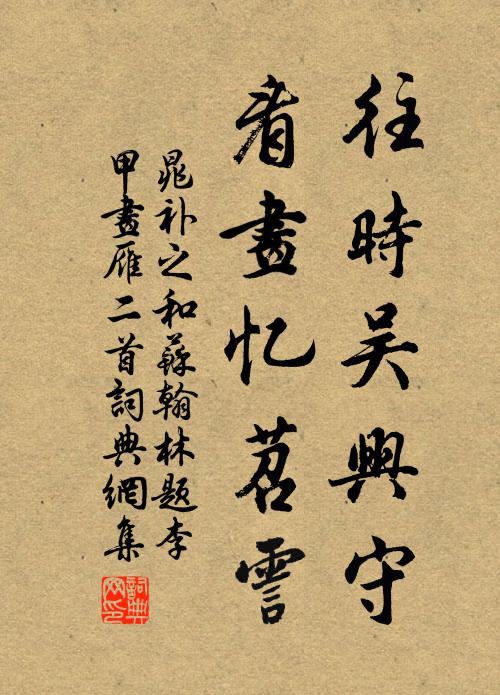 往時吴興守
看畫忆苕霅
晁补之和蘇翰林題李
甲畫雁二首詞典網集
詞典
网印